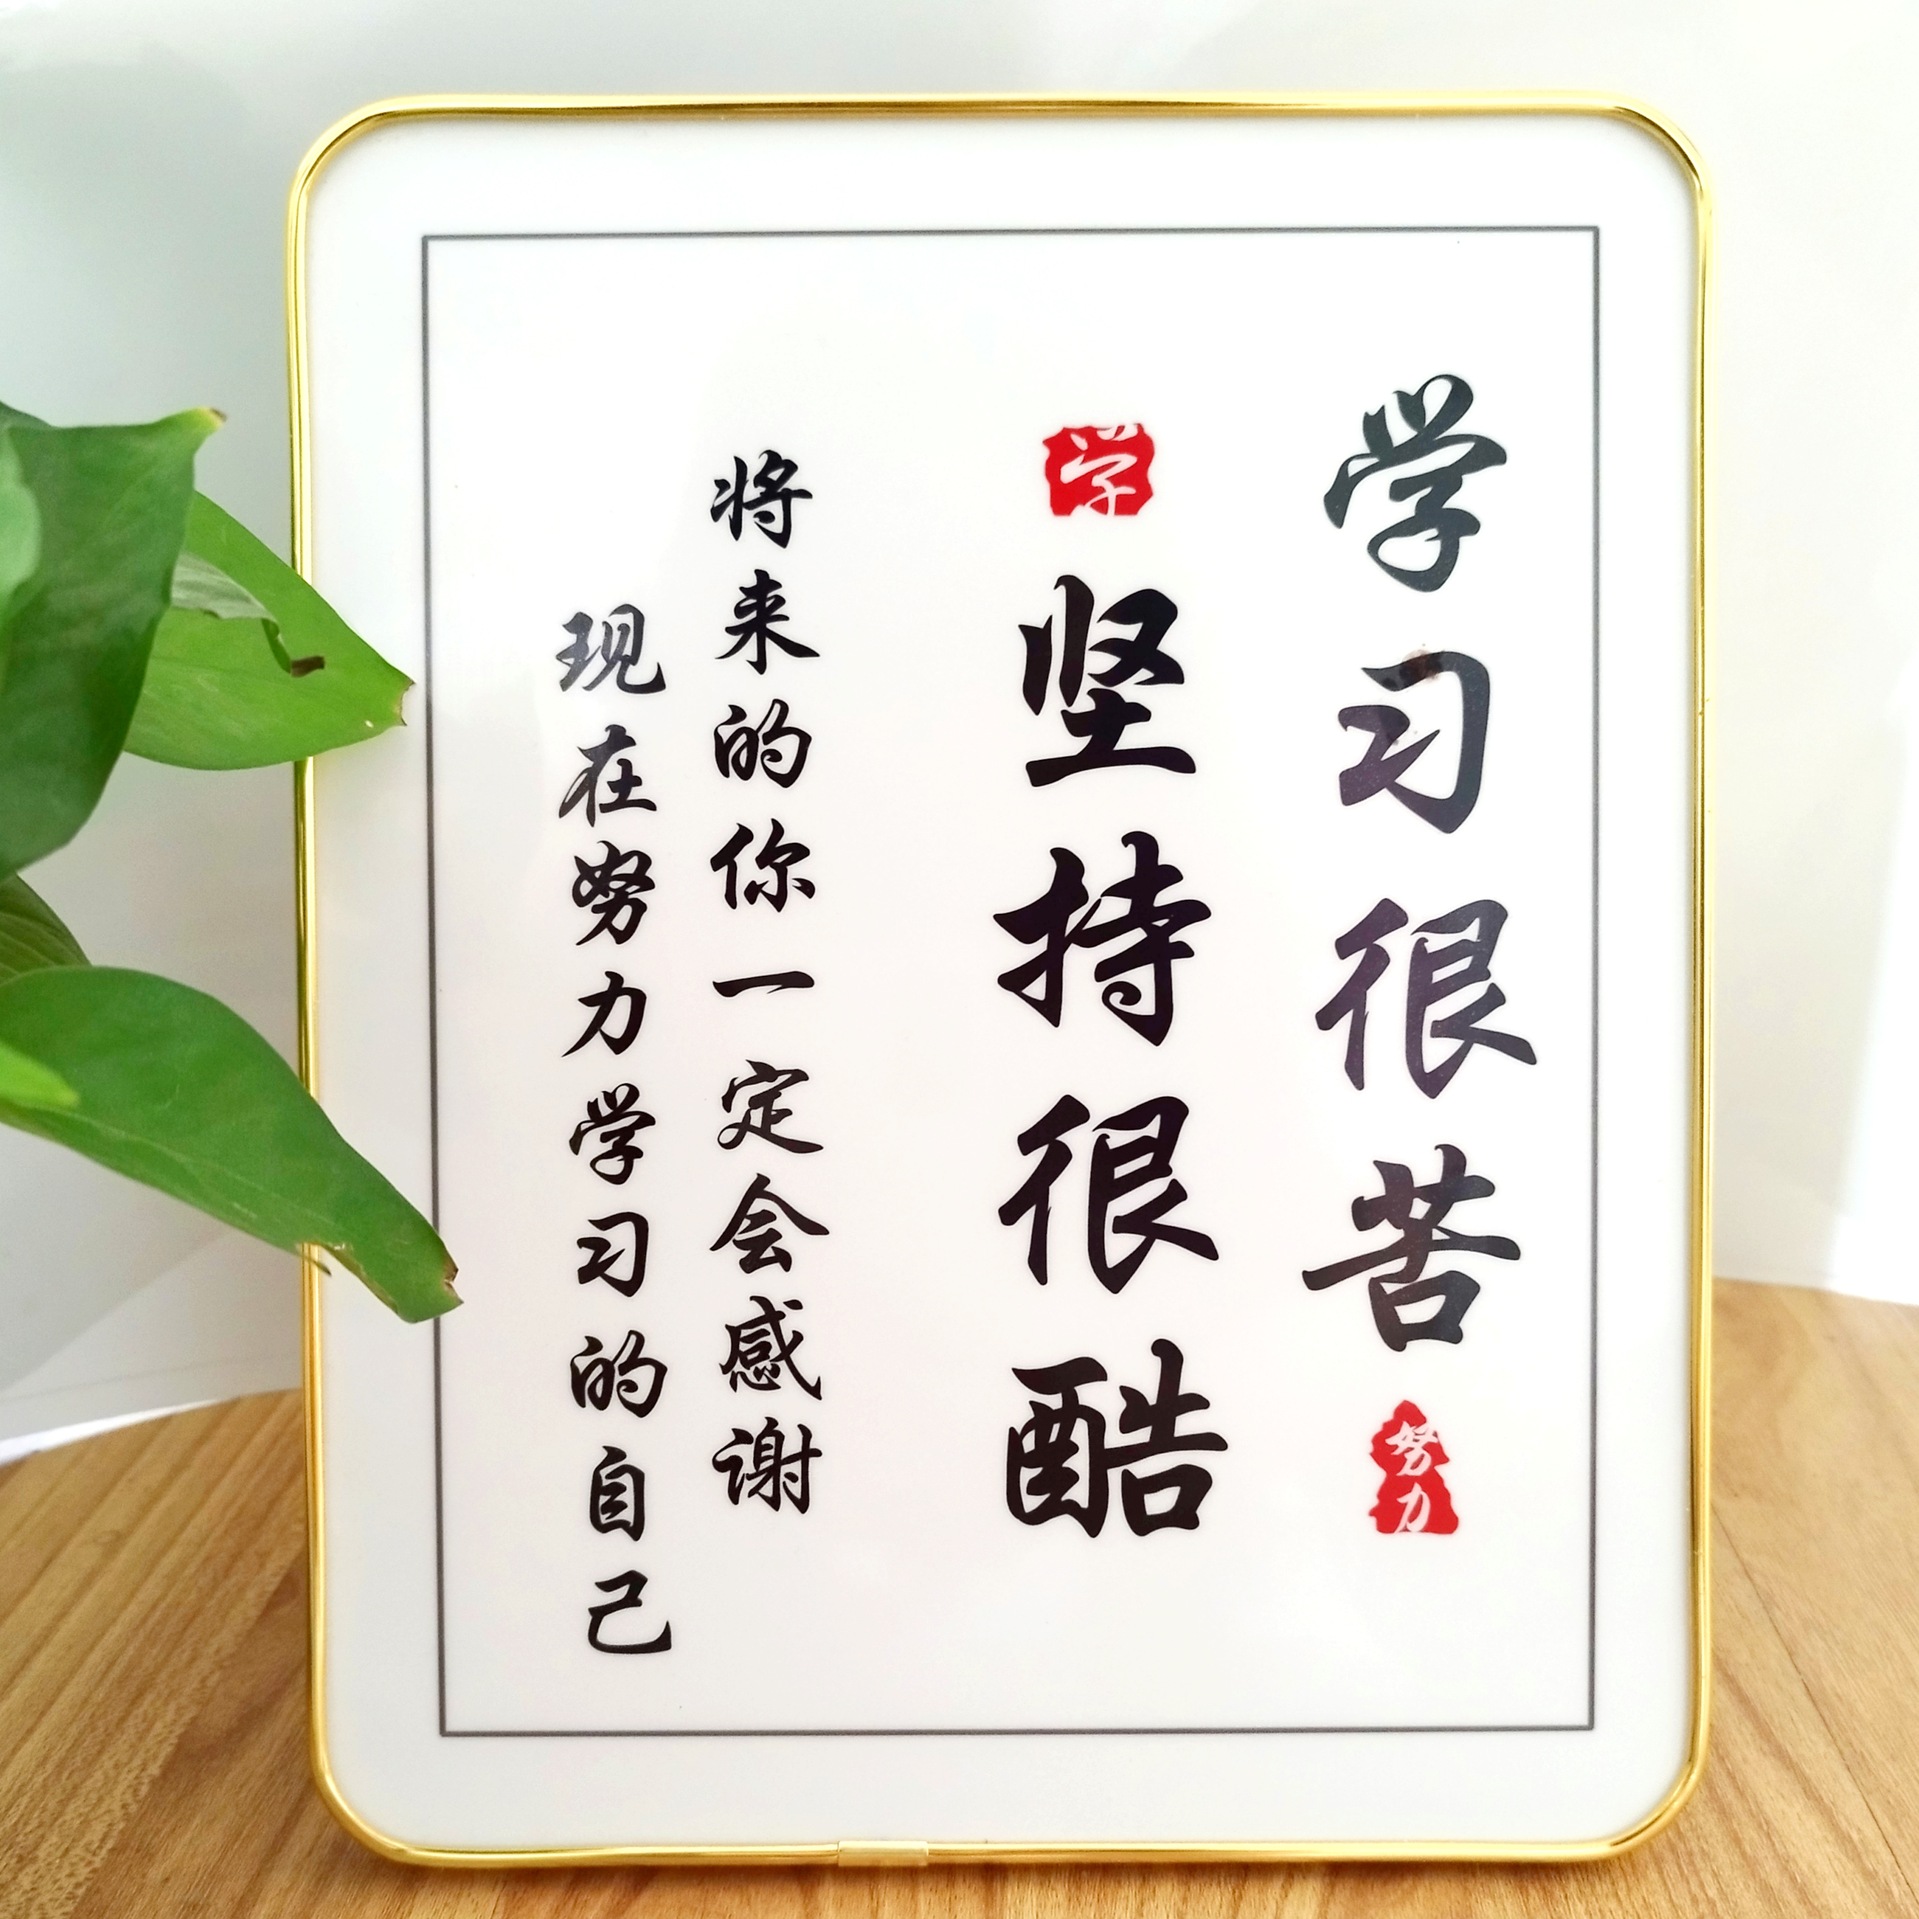 学习很苦
努力
学
坚持很酷
将来的你一定会感谢
现在努力学习的自己